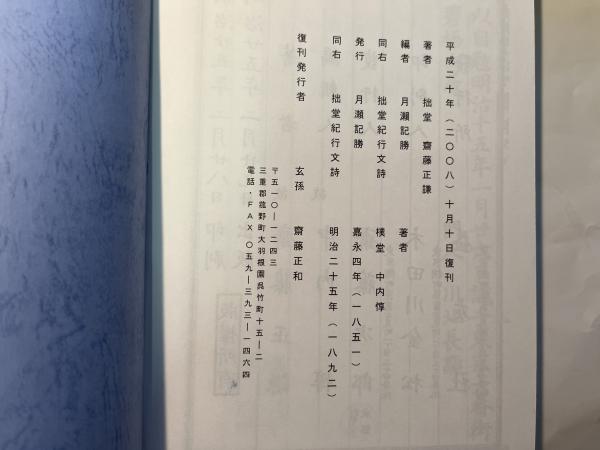 平成二十年（二〇〇八）十月十日復刊
著者　拙堂　齋藤正謙
編者　月瀬記勝　著者
同右　拙堂紀行文詩　樸堂　中内惇
発行　月瀬記勝　嘉永四年（一八五一）
同右　拙堂紀行文詩　明治二十五年（一八九二）
復刊発行者　玄孫　齋藤正和
〒五一〇―一二四三
三重郡菰野町大羽根園呉竹町十五―二
電話・FAX　〇五九―三九三―一四六四